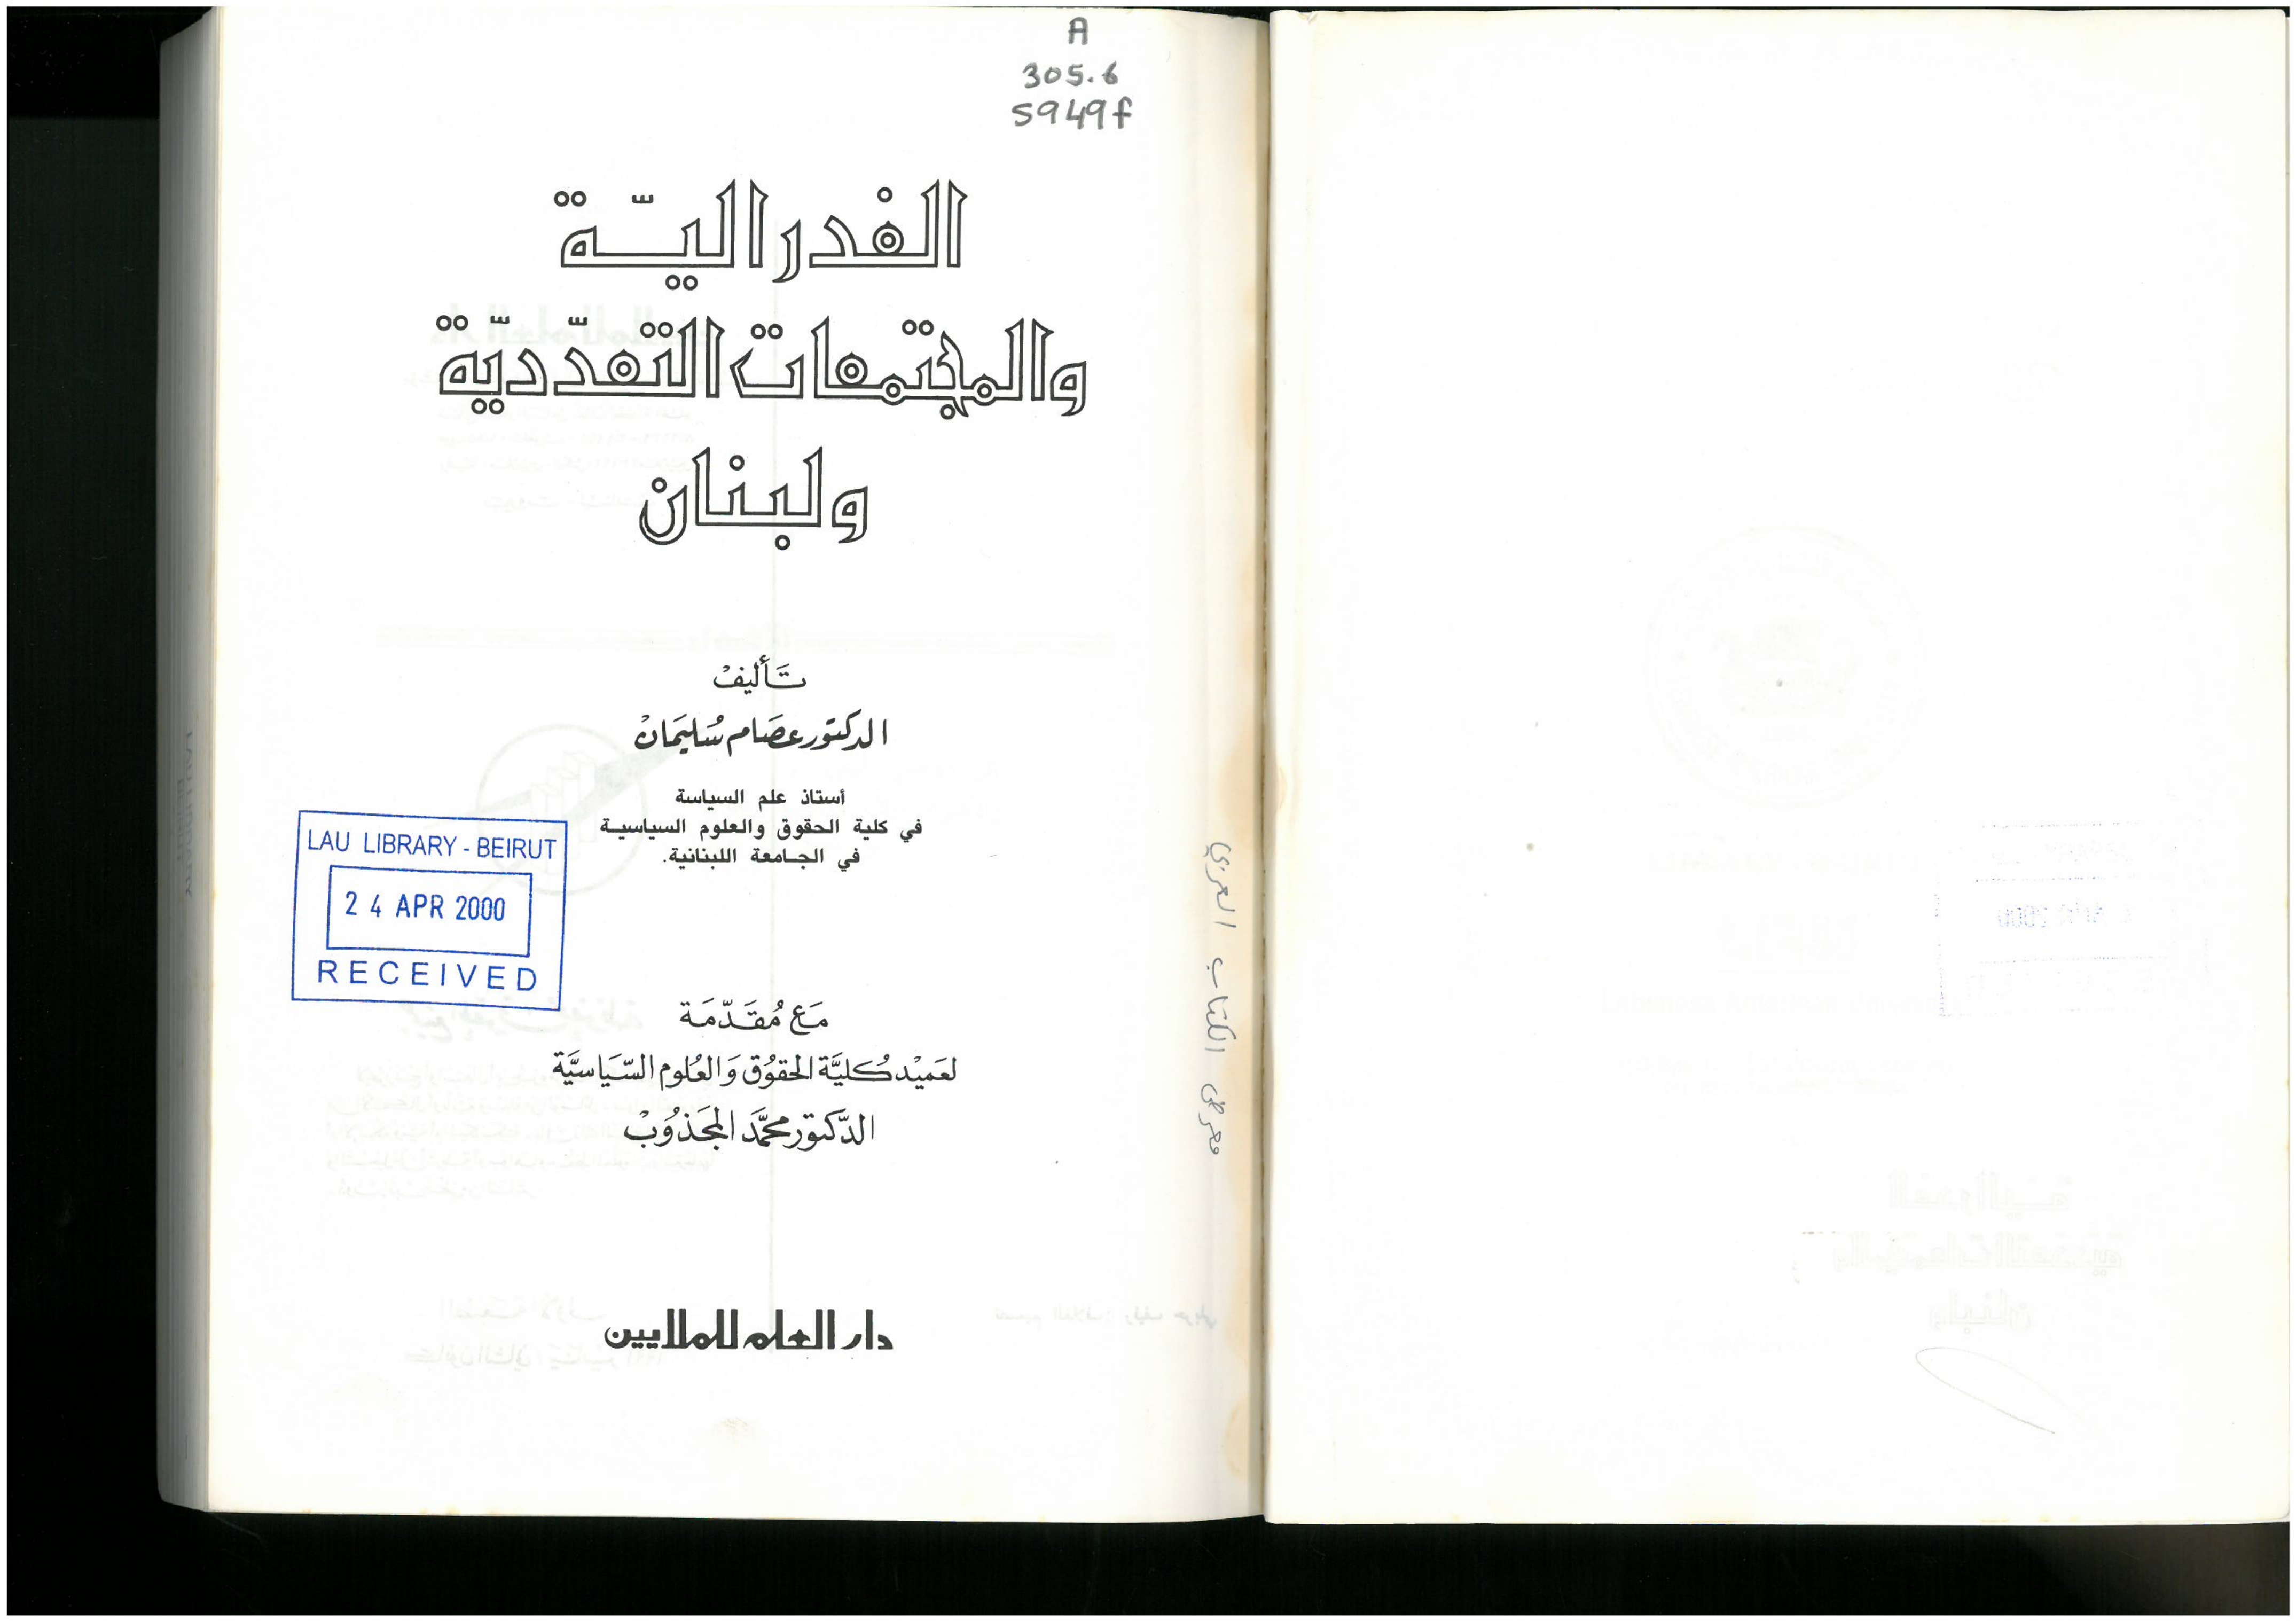 A
305.6
S949f
الفدراليّة
والمجتمعات التعدّديّة
ولبنان
تأليف
الدكتور عصام سُليمان
أستاذ علم السياسة
في كلية الحقوق والعلوم السياسية
في الجامعة اللبنانية.
LAU LIBRARY - BEIRUT
24 APR 2000
RECEIVED
مَع مُقَدّمَة
لعَميْد كُليَّة الحقوُق وَالعُلوم السّيَاسيَّة
الدَّكتور محمَّد المجَذوُبْ
دار العلم للملايين
معرض الكتاب العربي